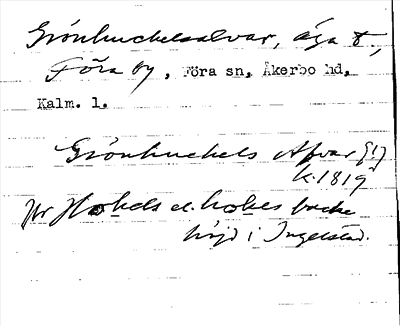 Grönhuckelsalvar, äga t,
Föra by, Föra sn, Åkerbo hd,
Kalm. l.
Grönhuckels Afvar
k. 1819
Jfr Hokels el. hokes backe
höjd i Ingelstad.